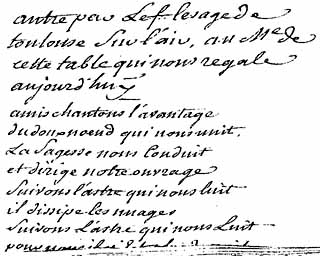 autre par Le f. lesage de
toulouse Sur l'air, au Me de
cette table qui nous regale
aujourd'huy
amis chantons l'avantage
du doux noeud qui nous unit.
La Sagesse nous Conduit
et dirige notre ouvrage
Suivons l'astre qui nous luit
il dissipe les nuages
Suivons L'astre qui nous Luit
pour nous il